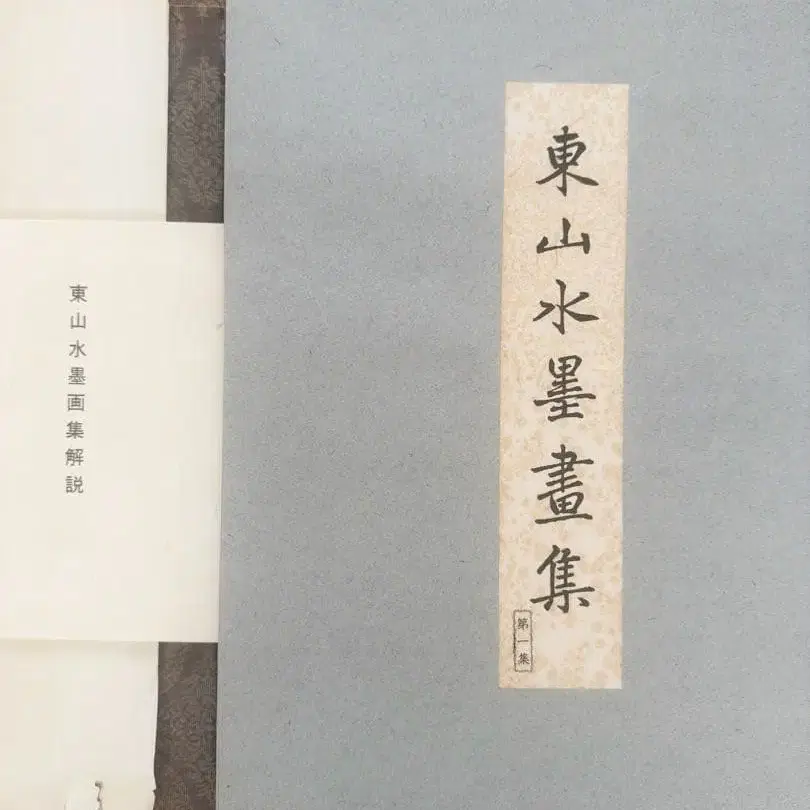 東山水墨畫集
第一集
東山水墨画集解説